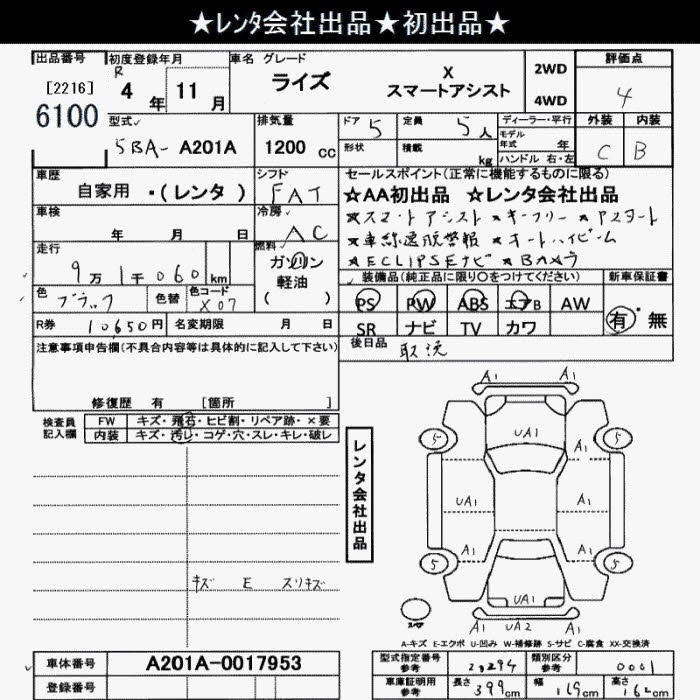 ★レンタ会社出品★初出品★
出品番号 初度登録年月 車名 グレード 評価点
[2216] R 4年 11月 ライズ X 2WD
6100 スマートアシスト 4WD 4
型式 排気量 ドア 5 定員 5人 ディーラー・平行 外装 内装
5BA-A201A 1200cc 形状 積載 kg モデル年式 年 C B
ハンドル 右・左
車歴 シフト セールスポイント(正常に機能するものに限る)
自家用・(レンタ) FAT ★AA初出品 ★レンタ会社出品
車検 冷房 ★スマートアシスト★キーフリー★Pスタート
年 月 日 AC ★車線逸脱警報★オートハイビーム
走行 燃料 ★ECLIPSEナビ★Bカメラ
9万1千060km ガソリン 装備品(純正品に限り○をつけてください) 新車保証書
軽油
( )
色 ブラック 色替 色コード X07 PS PW ABS エアB AW 有・無
R券 10650円 名変期限 月 日 SR ナビ TV カワ
注意事項申告欄(不具合内容等は具体的に記入して下さい) 後日品 取説
修復歴 有 [箇所 ]
検査員記入欄 FW キズ・飛石・ヒビ割・リペア跡・×要
内装 キズ・汚レ・コゲ・穴・スレ・キレ・破レ
レンタ会社出品
A1 A1
5 UA1 5
A1
UA1 A1
A1 A1
5 5
UA1
A1 UA2 A1
キズ E スリキズ
スペア
A-キズ E-エクボ U-凹み W-補修跡 S-サビ C-腐食 XX-交換済
車体番号 A201A-0017953 型式指定番号参考 20294 類別区分参考 0001
登録番号 車庫証明用参考 長さ 399cm 幅 169cm 高さ 162cm